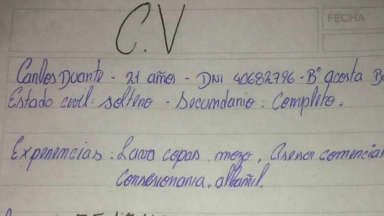 FECHA
C.V
Carlos Duarte - 21 años - DNI 40682796 - Bº acosta
Estado civil: soltero - Secundario: Completo.
Experiencias: Lava copas mozo, Asesor comercial
Consesionaria, albañil.